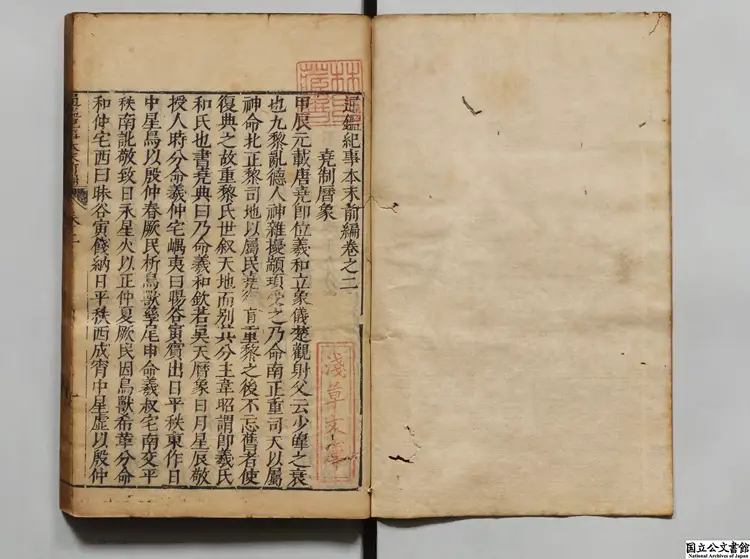 通鑑紀事本末前編卷之二
堯制曆象
甲辰元載唐堯卽位羲和立象儀楚觀射父云少皥之衰
也九黎亂德人神雜擾顓頊受之乃命南正重司天以屬
神命北正黎司地以屬民堯復育重黎之後不忘舊者使
復典之故重黎氏世叙天地而別其分主韋昭謂卽羲氏
和氏也書堯典曰乃命羲和欽若昊天曆象日月星辰敬
授人時分命羲仲宅嵎夷曰暘谷寅賓出日平秩東作日
中星鳥以殷仲春厥民析鳥獸孳尾申命羲叔宅南交平
秩南訛敬致日永星火以正仲夏厥民因鳥獸希革分命
和仲宅西曰昧谷寅餞納日平秩西成宵中星虛以殷仲
淺草文庫
国立公文書館
National Archives of Japan